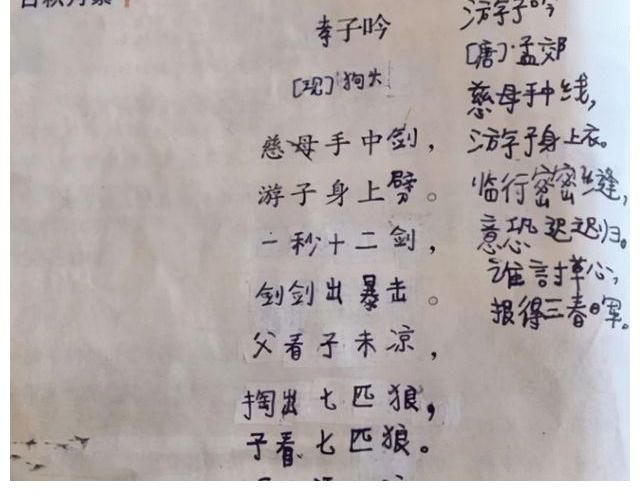 孝子吟
[现]
慈母手中剑，
游子身上劈。
一秒十二剑，
剑剑出暴击。
父看子未凉，
掏出七匹狼，
子看七匹狼。
游子吟
[唐]·孟郊
慈母手中线，
游子身上衣。
临行密密缝，
意恐迟迟归。
谁討草心，
报得三春晖。